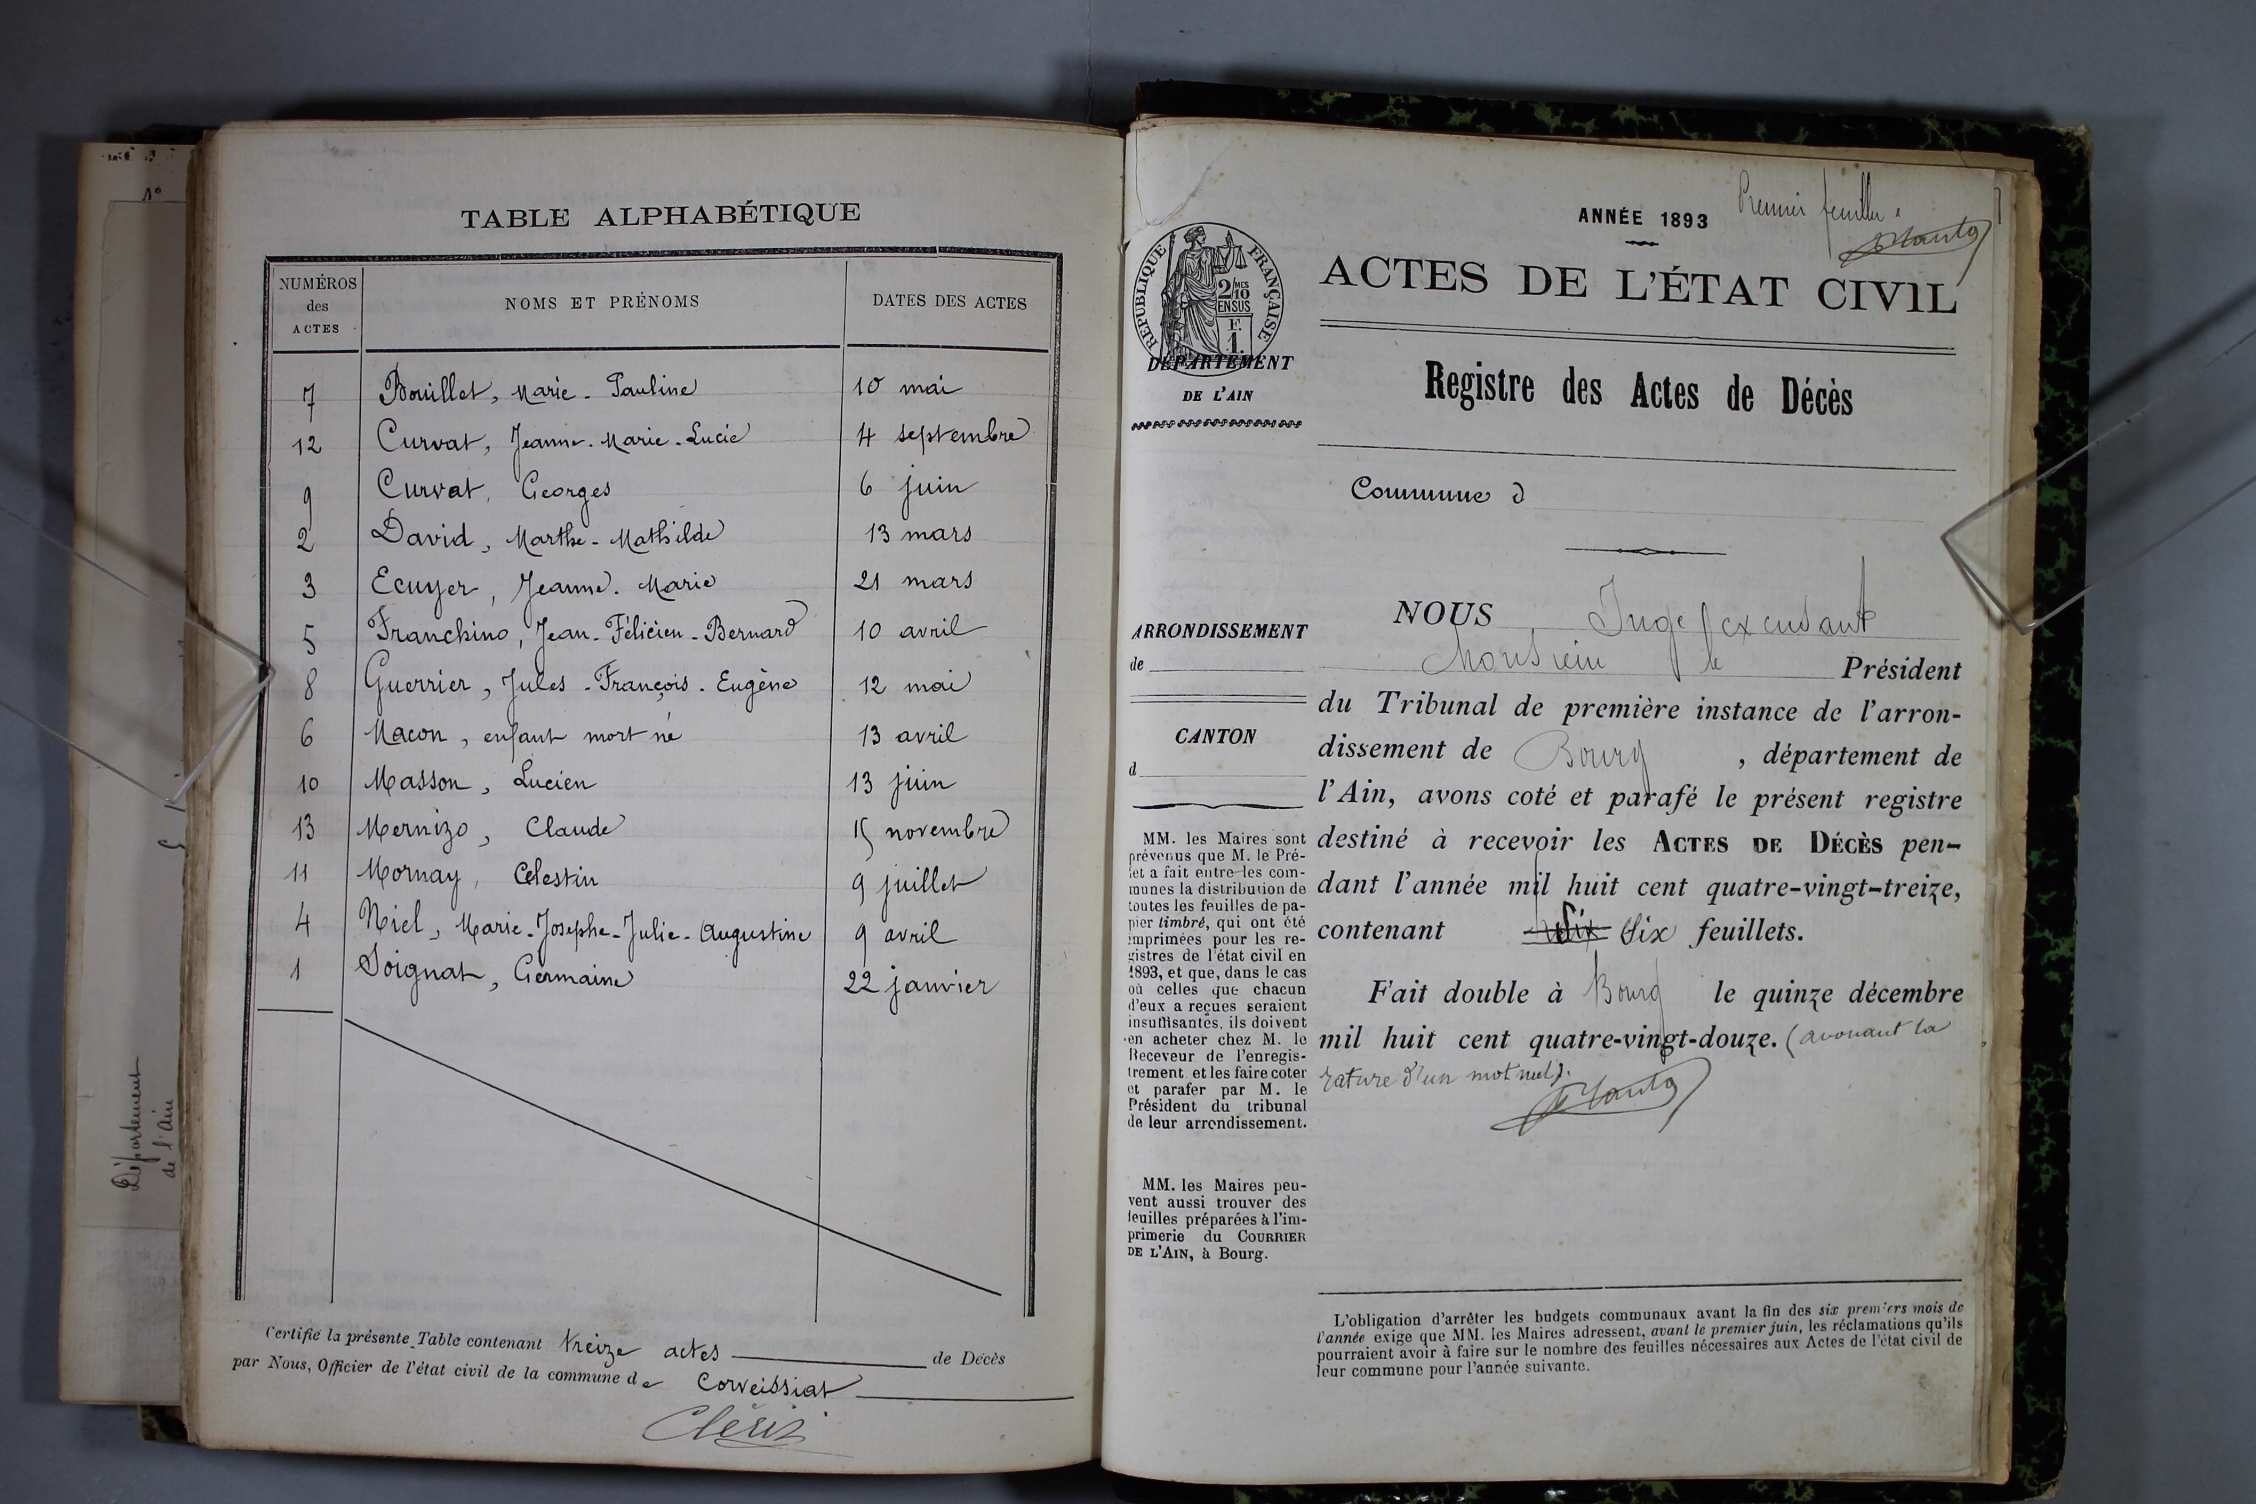 N°
Département
de l'Ain
TABLE ALPHABÉTIQUE
NUMÉROS des ACTES NOMS ET PRÉNOMS DATES DES ACTES
7 Bouillet, Marie-Pauline 10 mai
12 Curvat, Jeanne-Marie-Lucie 4 septembre
9 Curvat, Georges 6 juin
2 David, Marthe-Mathilde 13 mars
3 Ecuyer, Jeanne-Marie 21 mars
5 Franchino, Jean-Félicien-Bernard 10 avril
8 Guerrier, Jules-François-Eugène 12 mai
6 Macon, enfant mort né 13 avril
10 Masson, Lucien 13 juin
13 Mernizo, Claude 15 novembre
11 Mornay, Célestin 9 juillet
4 Niel, Marie-Josephe-Julie-Augustine 9 avril
1 Soignat, Germaine 22 janvier
Certifié la présente Table contenant treize actes de Décès
par Nous, Officier de l'état civil de la commune de Corveissiat
ANNÉE 1893
Premier feuillet
RÉPUBLIQUE FRANÇAISE
2/10 MES
EN SUS
F.
1.
ACTES DE L'ÉTAT CIVIL
DÉPARTEMENT
DE L'AIN
Registre des Actes de Décès
Commune d
ARRONDISSEMENT
de
CANTON
d
MM. les Maires sont
prévenus que M. le Pré-
fet a fait entre les com-
munes la distribution de
toutes les feuilles de pa-
pier timbré, qui ont été
imprimées pour les re-
gistres de l'état civil en
1893, et que, dans le cas
où celles que chacun
d'eux a reçues seraient
insuffisantes, ils doivent
en acheter chez M. le
Receveur de l'enregis-
trement et les faire coter
et parafer par M. le
Président du tribunal
de leur arrondissement.
MM. les Maires peu-
vent aussi trouver des
feuilles préparées à l'im-
primerie du COURRIER
DE L'AIN, à Bourg.
NOUS Juge
Monsieur le Président
du Tribunal de première instance de l'arron-
dissement de Bourg, département de
l'Ain, avons coté et parafé le présent registre
destiné à recevoir les ACTES DE DÉCÈS pen-
dant l'année mil huit cent quatre-vingt-treize,
contenant Six feuillets.
Fait double à Bourg le quinze décembre
mil huit cent quatre-vingt-douze. (avouant la
rature d'un mot nul).
L'obligation d'arrêter les budgets communaux avant la fin des six premiers mois de
l'année exige que MM. les Maires adressent, avant le premier juin, les réclamations qu'ils
pourraient avoir à faire sur le nombre des feuilles nécessaires aux Actes de l'état civil de
leur commune pour l'année suivante.